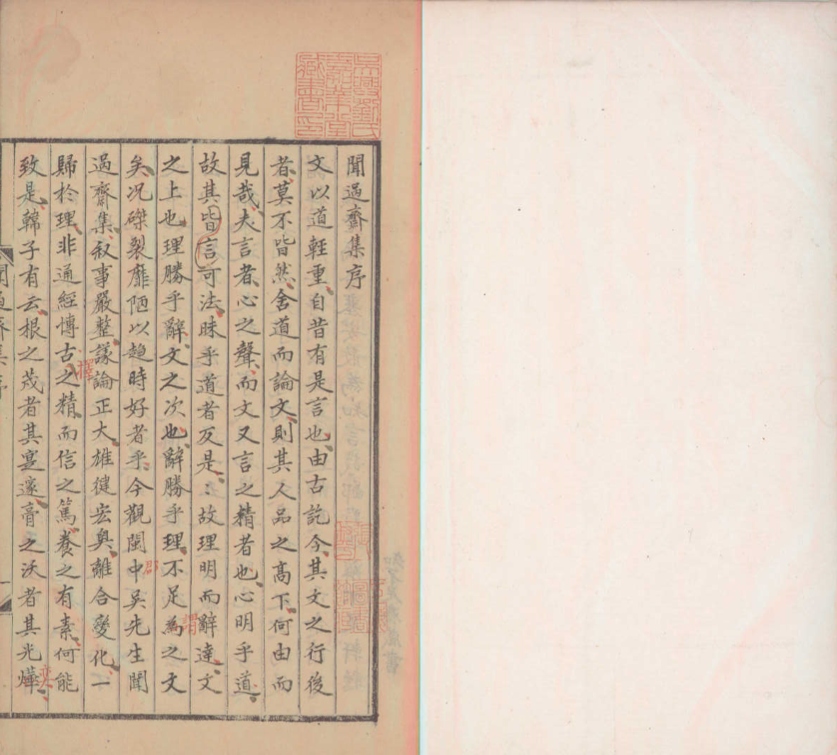 聞過齋集序
文以道輕重自昔有是言也由古訖今其文之行後
者莫不皆然舍道而論文則其人品之高下何由而
見哉夫言者心之聲而文又言之精者也心明乎道
故其皆言可法昧乎道者反是故理明而辭達文
之上也理勝乎辭文之次也辭勝乎理不足為之文
矣况磔裂靡陋以趍時好者乎今觀閩中吳先生聞
過齋集叙事嚴整議論正大雄健宏奥離合變化一
歸於理非通經博古之精而信之篤養之有素何能
致是韓子有云根之茂者其寔遂膏之沃者其光燁
聞過齋集序